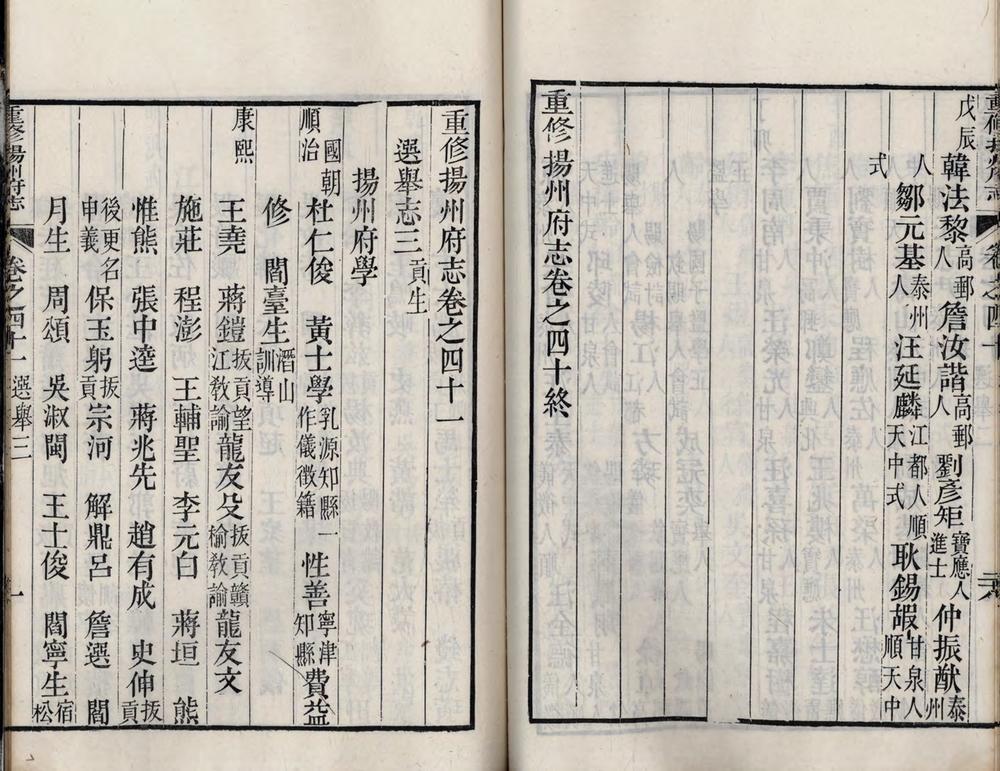 重修揚州府志 卷之四十
戊辰 韓法黎高郵人 詹汝諧高郵人 劉彥矩寶應人進士 仲振猷泰州
人 鄒元基泰州人 汪延麟江都人順天中式 耿錫嘏甘泉人順天中
式
重修揚州府志卷之四十終
重修揚州府志卷之四十一
選舉志三貢生
揚州府學
國朝
順治 杜仁俊 黃士學乳源知縣一作儀徵籍 性善寧津知縣 費益
修 閻臺生潛山訓導
康熙 王堯 蔣鎧拔貢望江教諭 龍友殳拔貢贛榆教諭 龍友文
施莊 程澎 王輔聖 李元白 蔣垣 熊
惟熊 張中達 蔣兆先 趙有成 史伸拔貢
後更名申義 保玉躬拔貢 宗河 解鼎呂 詹選 閻
月生 周頌 吳淑閩 王士俊 閻寧生宿松
重修揚州府志 卷之四十一 選舉三 一